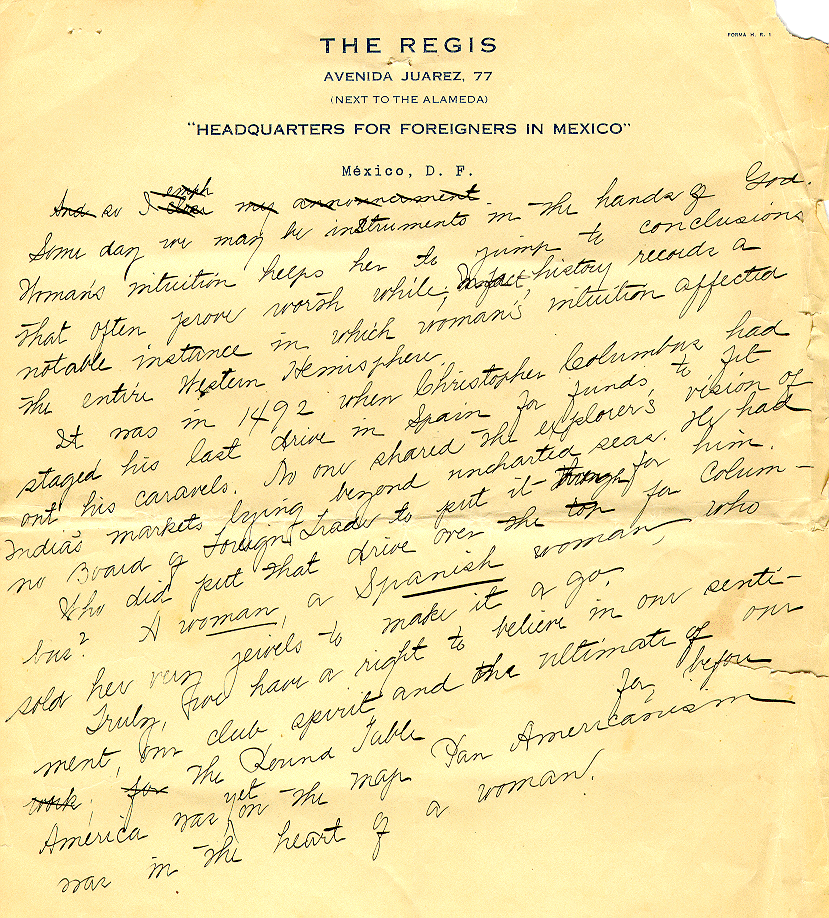 FORMA H. R. 1
THE REGIS
AVENIDA JUAREZ, 77
(NEXT TO THE ALAMEDA)
"HEADQUARTERS FOR FOREIGNERS IN MEXICO"
México, D. F.
emph
And so I my announcement
Some day we may be instruments in the hands of God.
Woman's intuition helps her to jump to conclusions
that often prove worth while. In fact, history records a
notable instance in which woman's intuition affected
the entire Western Hemisphere.
It was in 1492 when Christopher Columbus had
staged his last drive in Spain for funds to fit
out his caravels. No one shared the explorer's vision of
India's markets lying beyond uncharted seas. He had
no Board of Foreign Trade to put it through for him.
Who did put that drive over the top for Colum-
bus? A woman, a Spanish woman, who
sold her very jewels to make it a go.
Truly, we have a right to believe in our senti-
ment, our club spirit and the ultimate of our
work, for the Round Table for, before
America was yet on the map Pan Americanism
was in the heart of a woman.